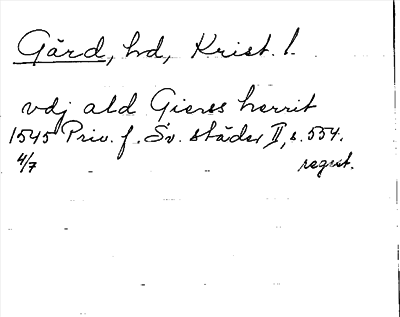 Gärd, hd, Krist. l.
vdj ald Gierss herrit
1545 Priv. f. Sv. städer II, s. 554.
4/7 regest.